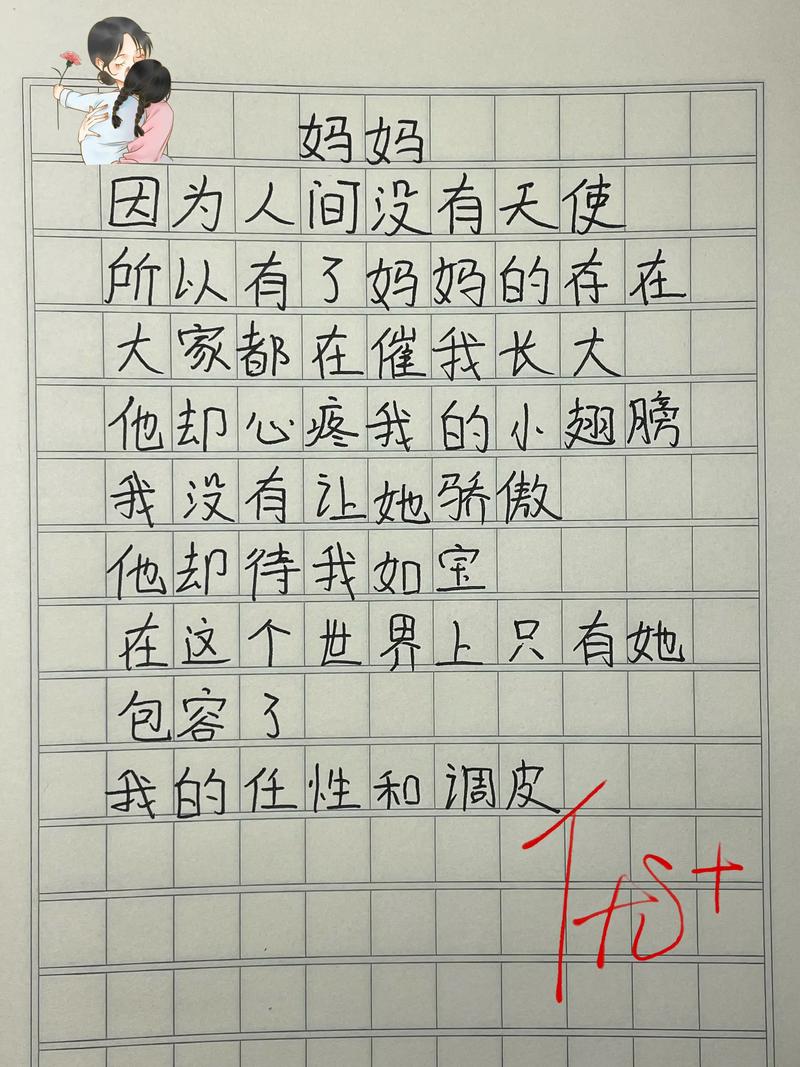 妈妈
因为人间没有天使
所以有了妈妈的存在
大家都在催我长大
他却心疼我的小翅膀
我没有让她骄傲
他却待我如宝
在这个世界上只有她
包容了
我的任性和调皮
优+